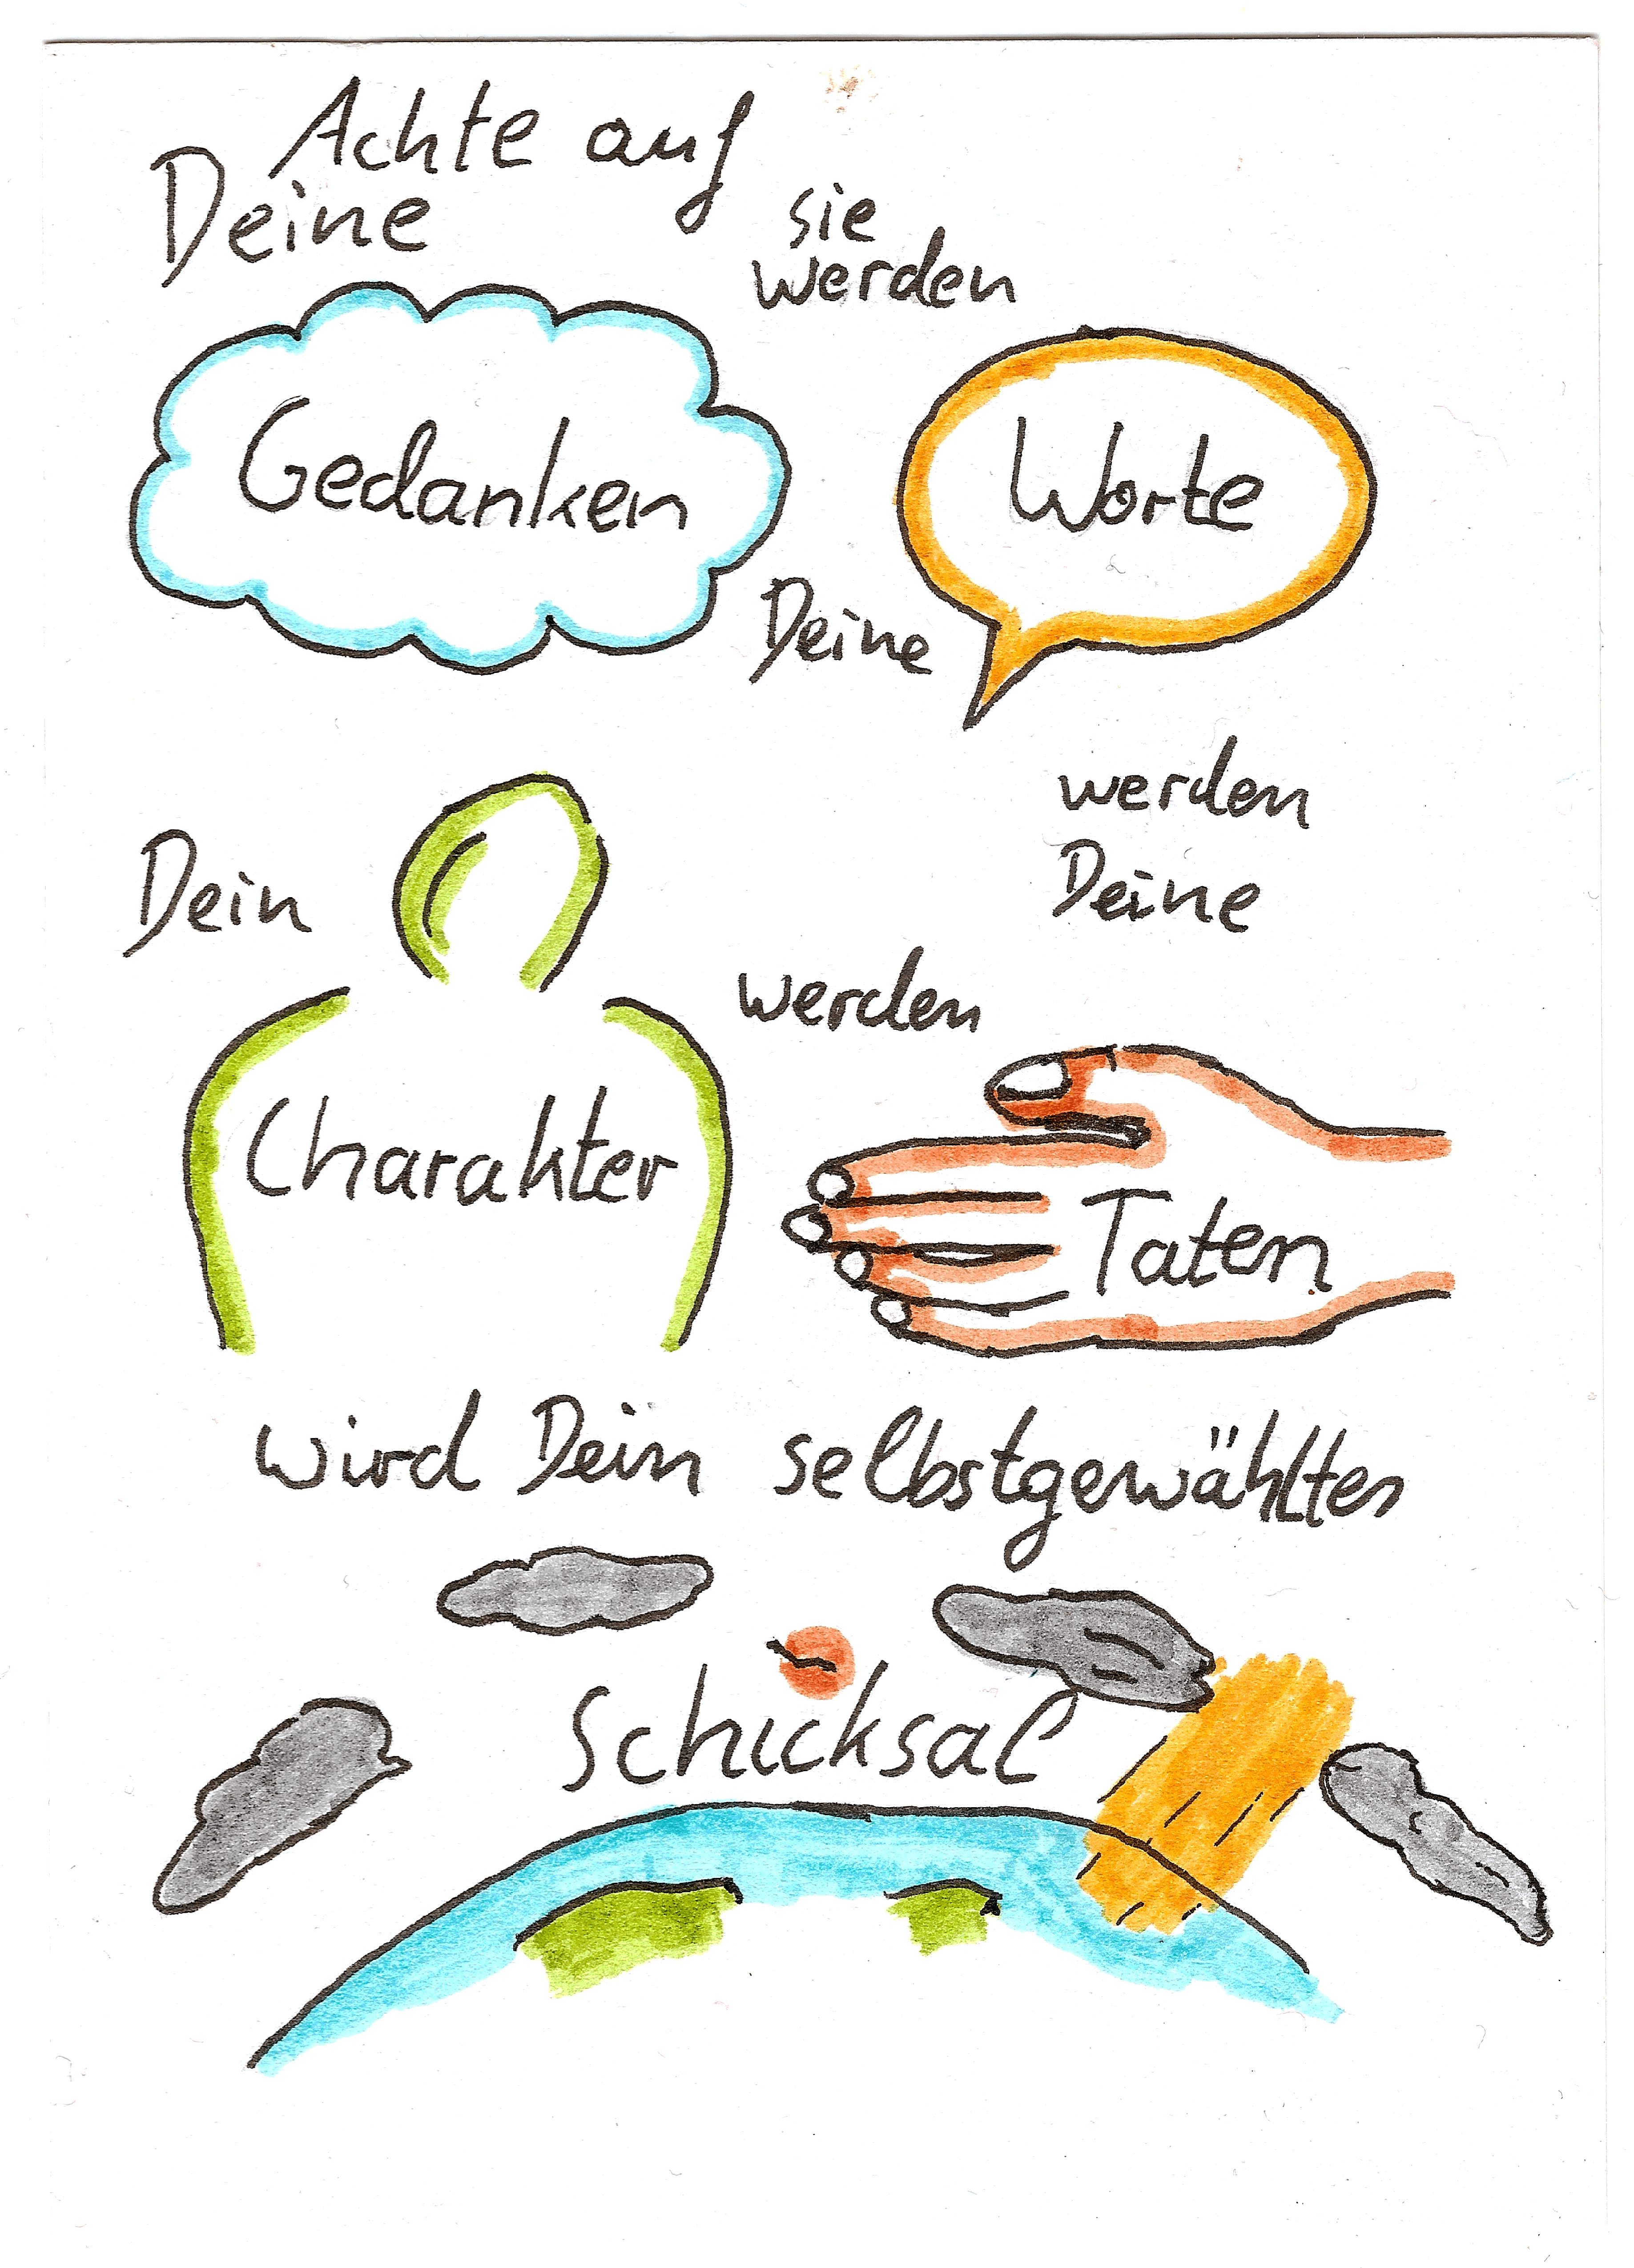 Achte auf
Deine
Gedanken
sie
werden
Deine
Worte
werden
Deine
Taten
werden
Dein
Charakter
wird Dein selbstgewähltes
Schicksal